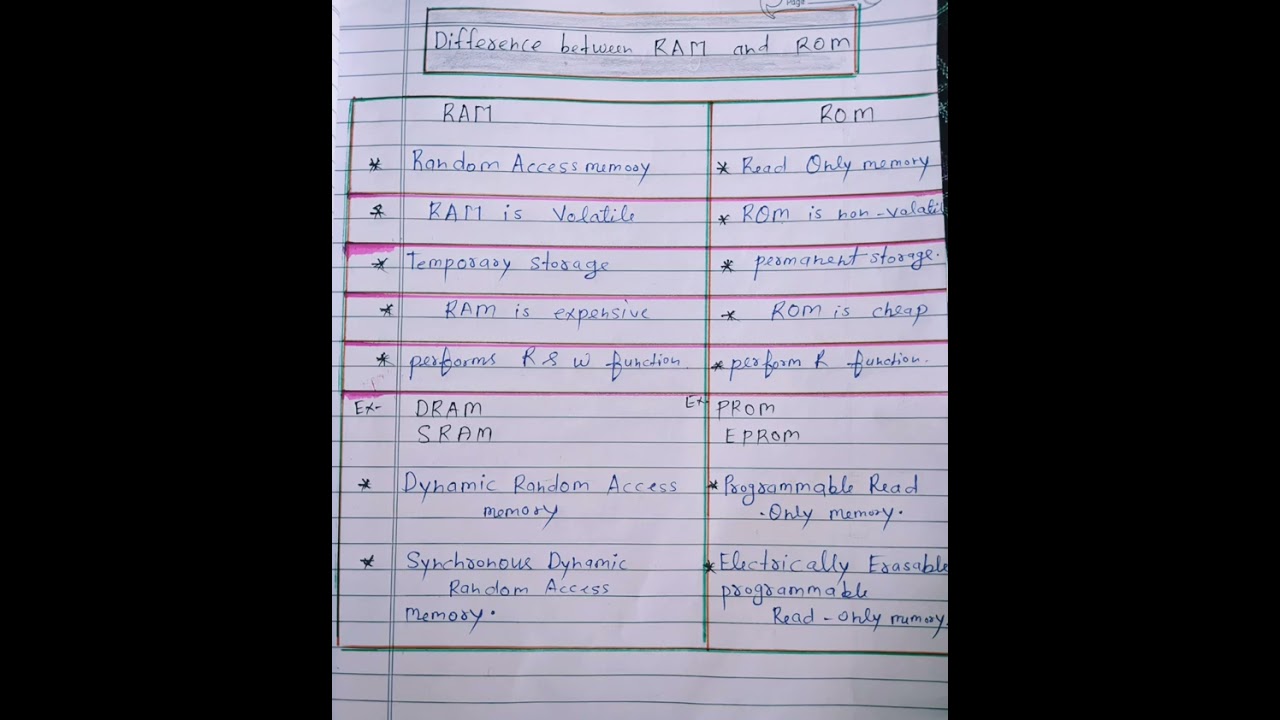 Page
Difference between RAM and ROM
RAM
ROM
* Random Access memory
* Read Only memory
* RAM is Volatile
* ROM is non-volatil
* Temporary storage
* permanent storage.
* RAM is expensive
* ROM is cheap
* performs R & W function.
* perform R function.
Ex- DRAM
SRAM
Ex- PROM
EPROM
* Dynamic Random Access
memory
* Programmable Read
-Only memory.
* Synchronous Dynamic
Random Access
memory.
* Electrically Erasable
programmable
Read-only memory.